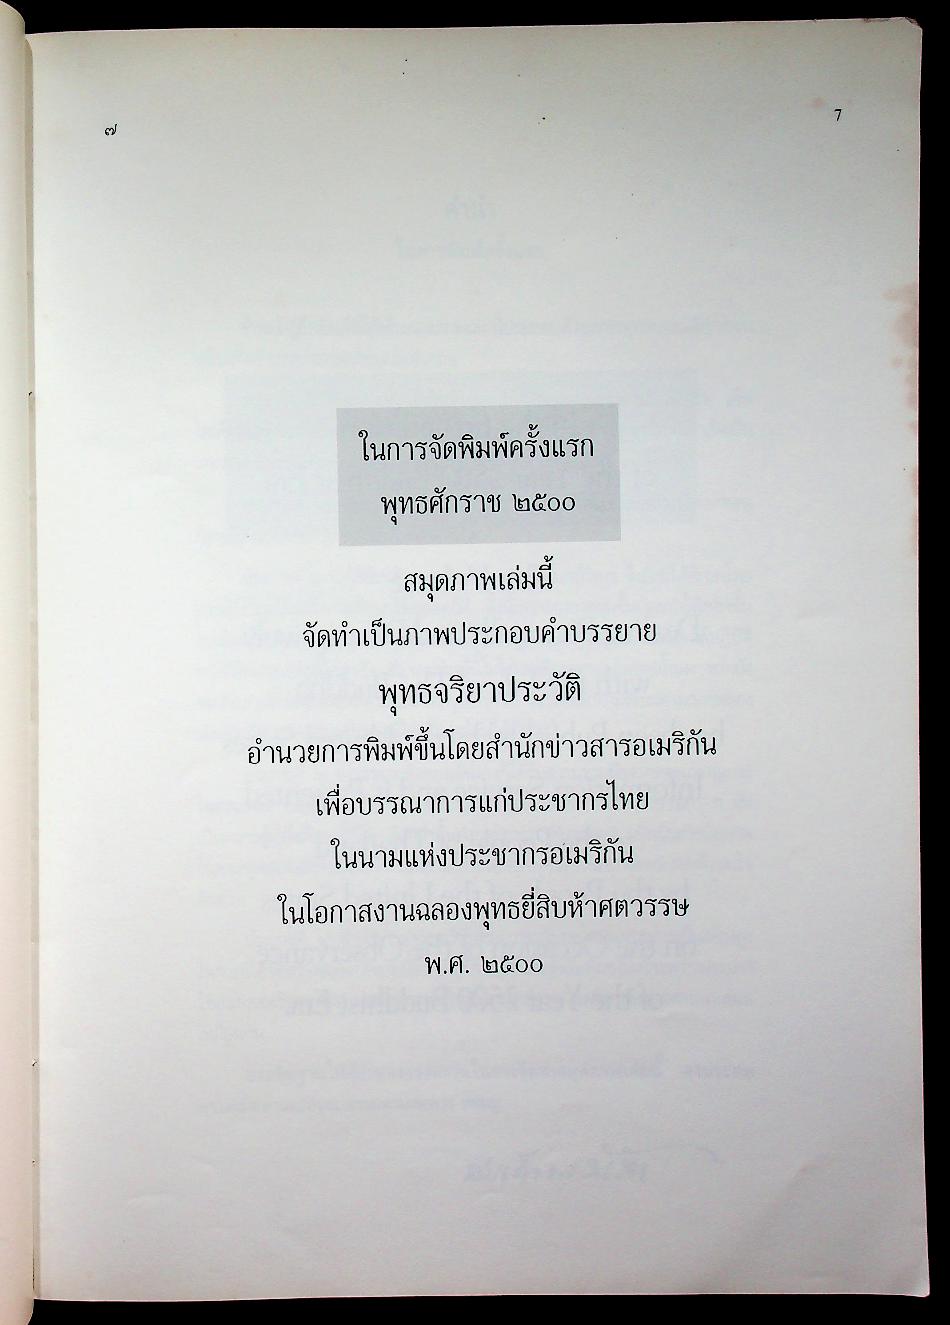 ๗
7
ในการจัดพิมพ์ครั้งแรก
พุทธศักราช ๒๕๐๐
สมุดภาพเล่มนี้
จัดทำเป็นภาพประกอบคำบรรยาย
พุทธจริยาประวัติ
อำนวยการพิมพ์ขึ้นโดยสำนักข่าวสารอเมริกัน
เพื่อบรรณาการแก่ประชากรไทย
ในนามแห่งประชากรอเมริกัน
ในโอกาสงานฉลองพุทธยี่สิบห้าศตวรรษ
พ.ศ. ๒๕๐๐